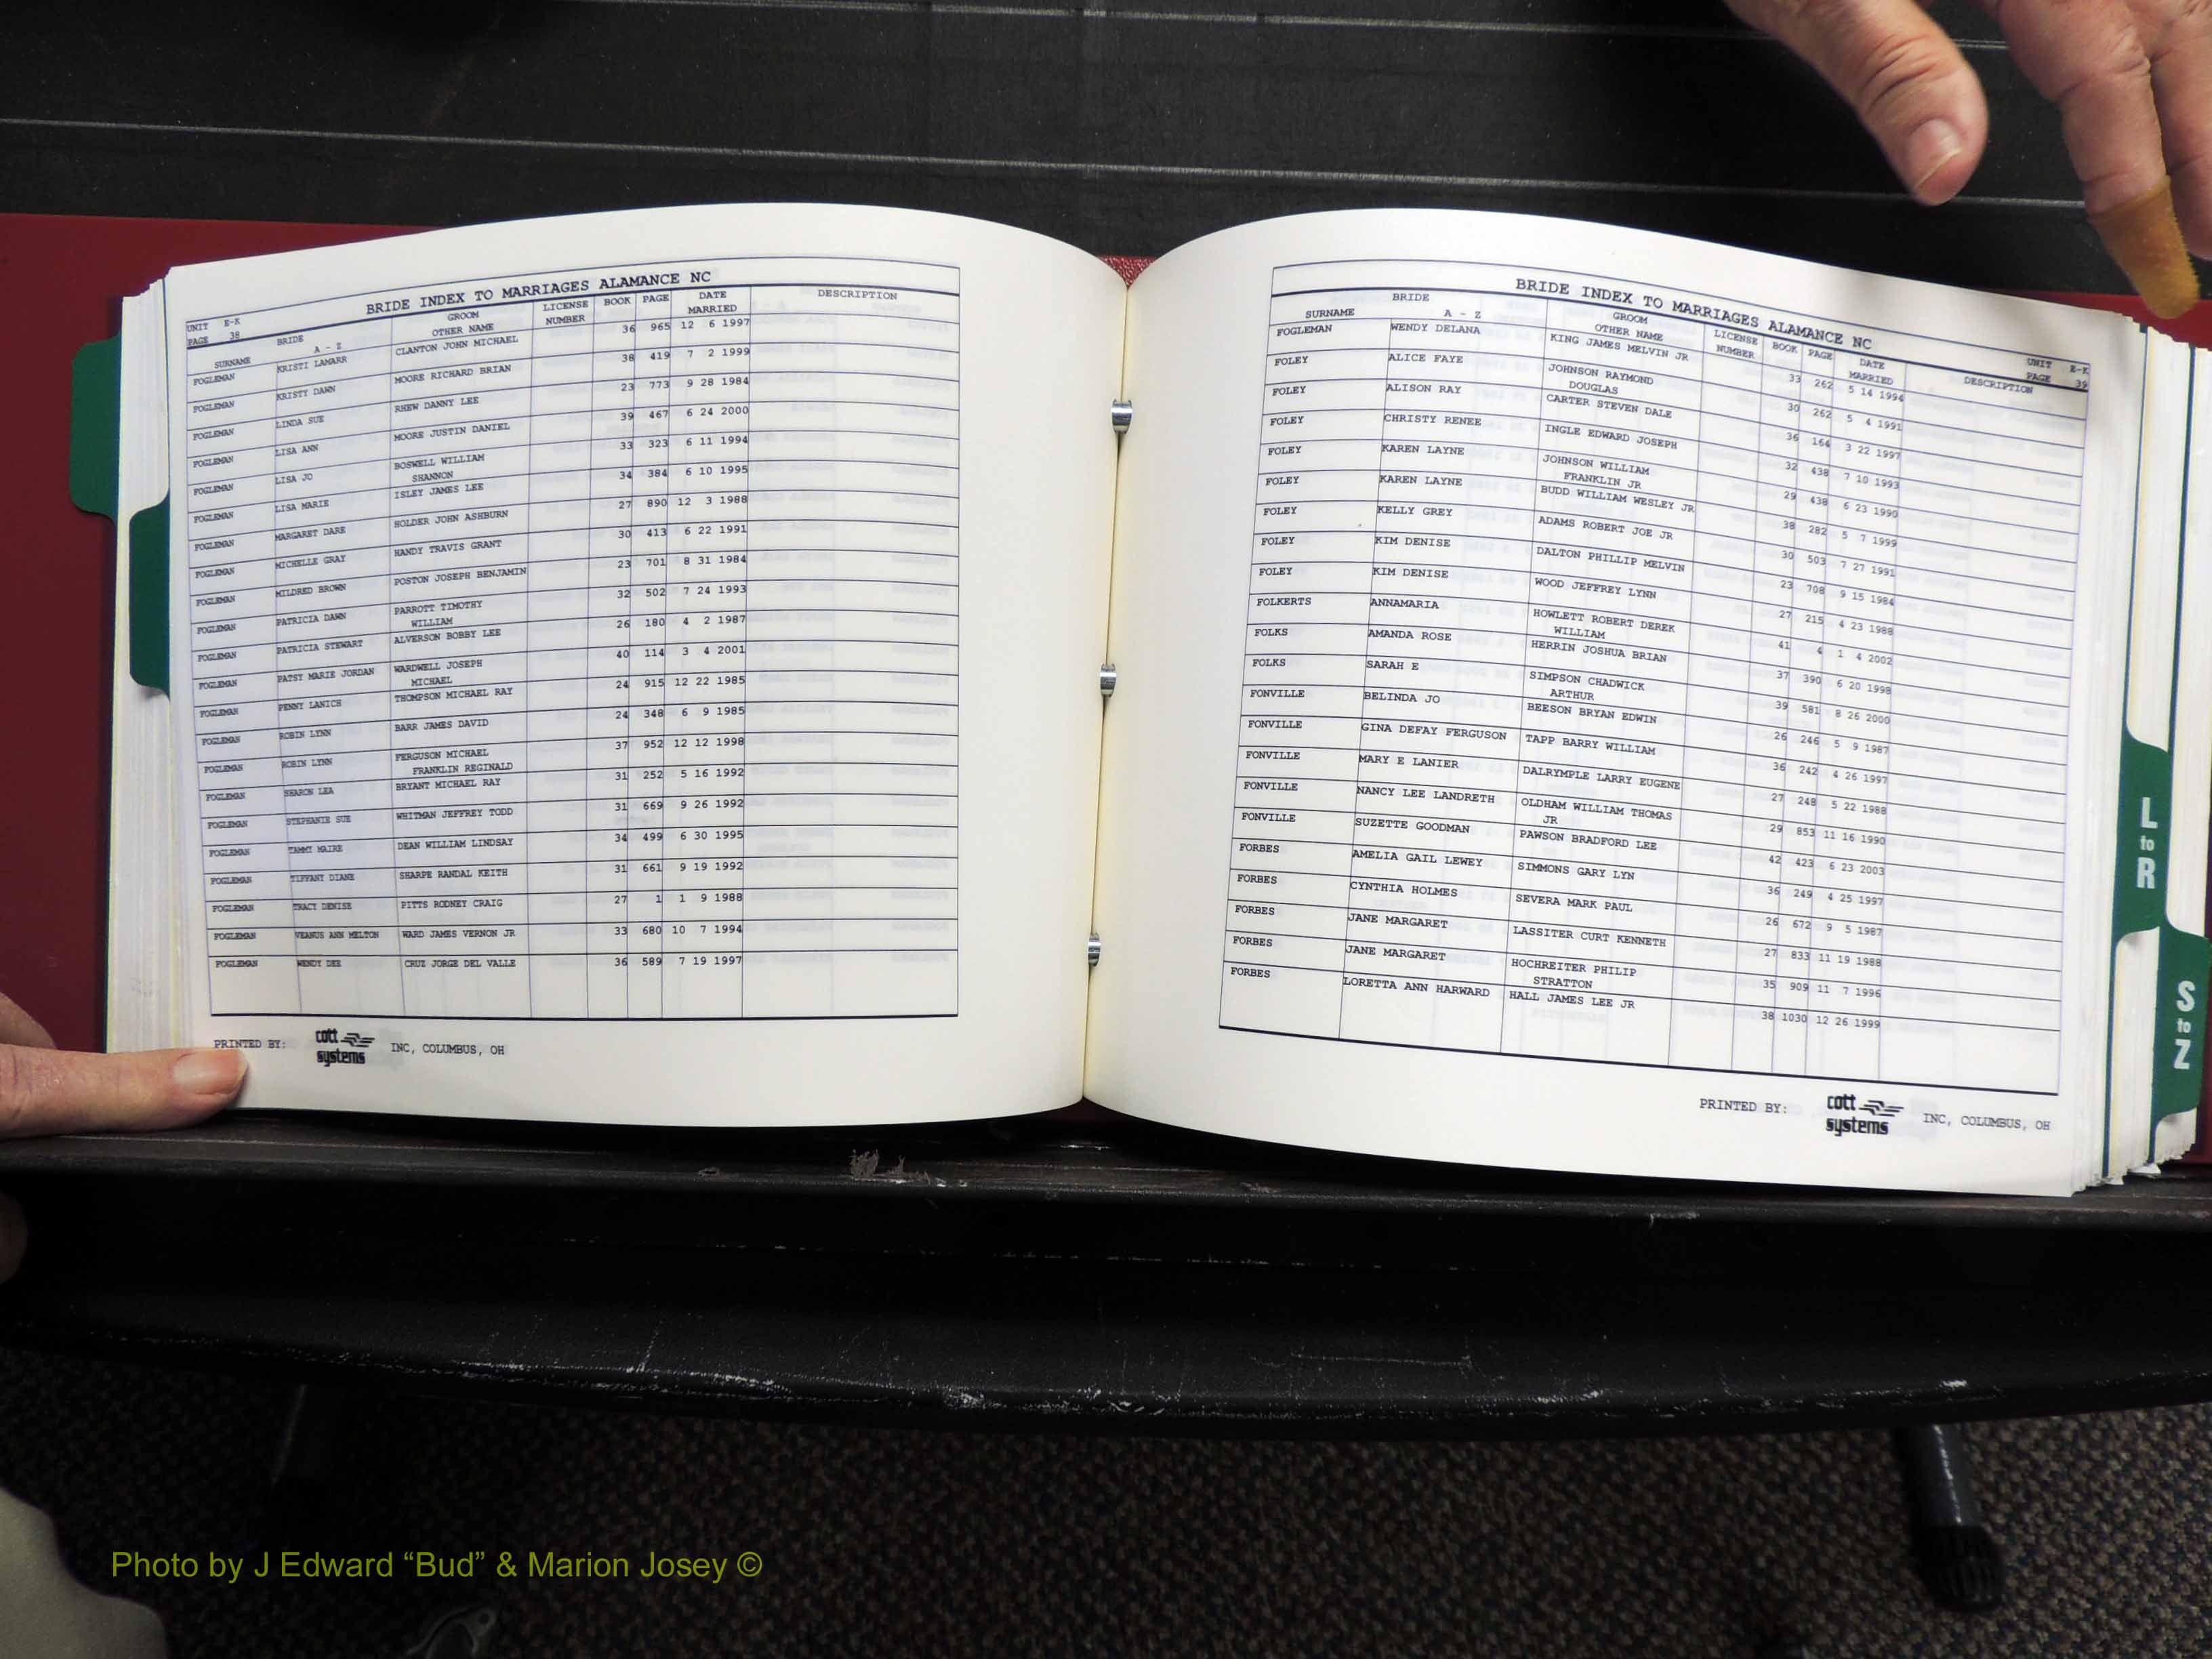 BRIDE INDEX TO MARRIAGES ALAMANCE NC
UNIT E-K
PAGE 38
BRIDE GROOM LICENSE BOOK PAGE DATE DESCRIPTION
SURNAME A - Z OTHER NAME NUMBER MARRIED
FOGLEMAN KRISTI LAMARR CLANTON JOHN MICHAEL 36 965 12 6 1997
FOGLEMAN KRISTY DAWN MOORE RICHARD BRIAN 38 419 7 2 1999
FOGLEMAN LINDA SUE RHEW DANNY LEE 23 773 9 28 1984
FOGLEMAN LISA ANN MOORE JUSTIN DANIEL 39 467 6 24 2000
FOGLEMAN LISA JO BOSWELL WILLIAM 33 323 6 11 1994
SHANNON
FOGLEMAN LISA MARIE ISLEY JAMES LEE 34 384 6 10 1995
FOGLEMAN MARGARET DARE HOLDER JOHN ASHBURN 27 890 12 3 1988
FOGLEMAN MICHELLE GRAY HANDY TRAVIS GRANT 30 413 6 22 1991
FOGLEMAN MILDRED BROWN POSTON JOSEPH BENJAMIN 23 701 8 31 1984
FOGLEMAN PATRICIA DAWN PARROTT TIMOTHY 32 502 7 24 1993
WILLIAM
FOGLEMAN PATRICIA STEWART ALVERSON BOBBY LEE 26 180 4 2 1987
FOGLEMAN PATSY MARIE JORDAN WARDWELL JOSEPH 40 114 3 4 2001
MICHAEL
FOGLEMAN PENNY LANICH THOMPSON MICHAEL RAY 24 915 12 22 1985
FOGLEMAN ROBIN LYNN BARR JAMES DAVID 24 348 6 9 1985
FOGLEMAN ROBIN LYNN FERGUSON MICHAEL 37 952 12 12 1998
FRANKLIN REGINALD
FOGLEMAN SHARON LEA BRYANT MICHAEL RAY 31 252 5 16 1992
FOGLEMAN STEPHANIE SUE WHITMAN JEFFREY TODD 31 669 9 26 1992
FOGLEMAN TAMMY MAIRE DEAN WILLIAM LINDSAY 34 499 6 30 1995
FOGLEMAN TIFFANY DIANE SHARPE RANDAL KEITH 31 661 9 19 1992
FOGLEMAN TRACY DENISE PITTS RODNEY CRAIG 27 1 1 9 1988
FOGLEMAN VEANUS ANN MELTON WARD JAMES VERNON JR 33 680 10 7 1994
FOGLEMAN WENDY DEE CRUZ JORGE DEL VALLE 36 589 7 19 1997
PRINTED BY: cott systems INC, COLUMBUS, OH
BRIDE INDEX TO MARRIAGES ALAMANCE NC
UNIT E-K
PAGE 39
BRIDE GROOM LICENSE BOOK PAGE DATE DESCRIPTION
SURNAME A - Z OTHER NAME NUMBER MARRIED
FOGLEMAN WENDY DELANA KING JAMES MELVIN JR 33 262 5 14 1994
FOLEY ALICE FAYE JOHNSON RAYMOND 30 262 5 4 1991
DOUGLAS
FOLEY ALISON RAY CARTER STEVEN DALE 36 164 3 22 1997
FOLEY CHRISTY RENEE INGLE EDWARD JOSEPH 32 438 7 10 1993
FOLEY KAREN LAYNE JOHNSON WILLIAM 29 438 6 23 1990
FRANKLIN JR
FOLEY KAREN LAYNE BUDD WILLIAM WESLEY JR 38 282 5 7 1999
FOLEY KELLY GREY ADAMS ROBERT JOE JR 30 503 7 27 1991
FOLEY KIM DENISE DALTON PHILLIP MELVIN 23 708 9 15 1984
FOLEY KIM DENISE WOOD JEFFREY LYNN 27 215 4 23 1988
FOLKERTS ANNAMARIA HOWLETT ROBERT DEREK 41 4 1 4 2002
WILLIAM
FOLKS AMANDA ROSE HERRIN JOSHUA BRIAN 37 390 6 20 1998
FOLKS SARAH E SIMPSON CHADWICK 39 581 8 26 2000
ARTHUR
FONVILLE BELINDA JO BEESON BRYAN EDWIN 26 246 5 9 1987
FONVILLE GINA DEFAY FERGUSON TAPP BARRY WILLIAM 36 242 4 26 1997
FONVILLE MARY E LANIER DALRYMPLE LARRY EUGENE 27 248 5 22 1988
FONVILLE NANCY LEE LANDRETH OLDHAM WILLIAM THOMAS 29 853 11 16 1990
JR
FONVILLE SUZETTE GOODMAN PAWSON BRADFORD LEE 42 423 6 23 2003
FORBES AMELIA GAIL LEWEY SIMMONS GARY LYN 36 249 4 25 1997
FORBES CYNTHIA HOLMES SEVERA MARK PAUL 26 672 9 5 1987
FORBES JANE MARGARET LASSITER CURT KENNETH 27 833 11 19 1988
FORBES JANE MARGARET HOCHREITER PHILIP 35 909 11 7 1996
STRATTON
FORBES LORETTA ANN HARWARD HALL JAMES LEE JR 38 1030 12 26 1999
PRINTED BY: cott systems INC, COLUMBUS, OH
L to R
S to Z
Photo by J Edward “Bud” & Marion Josey ©